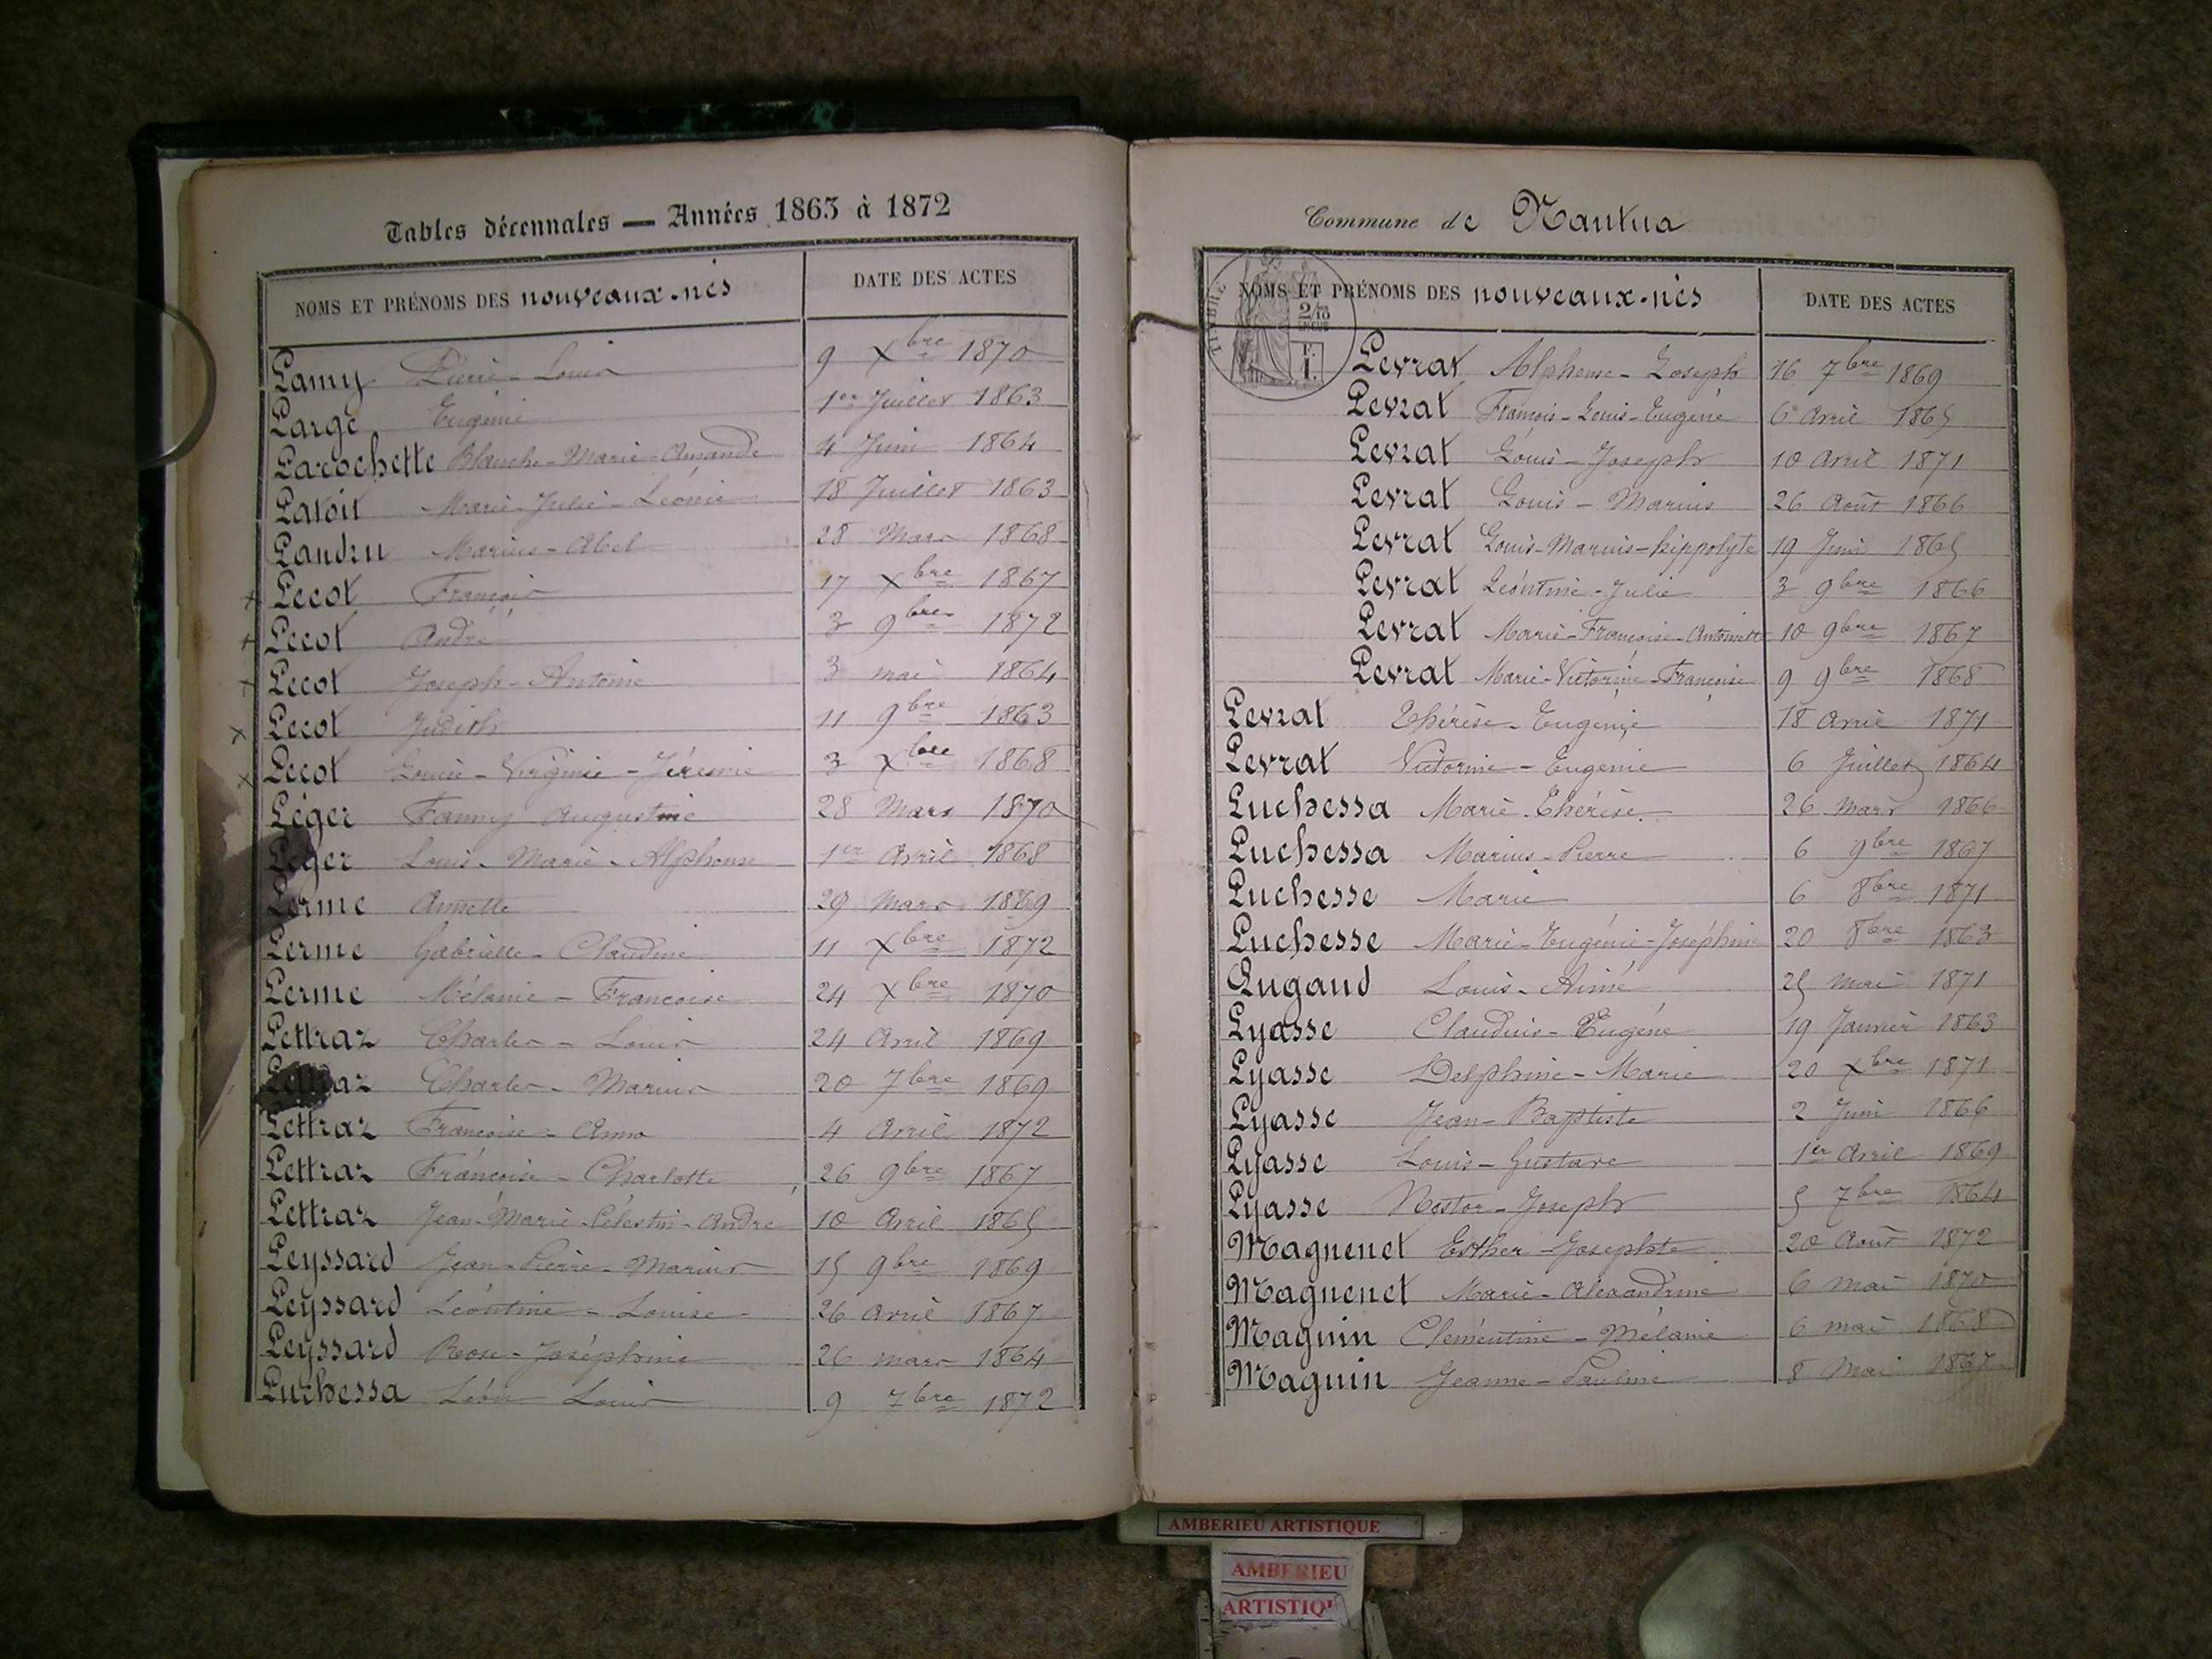 Tables décennales — Années 1863 à 1872
NOMS ET PRÉNOMS DES nouveaux-nés DATE DES ACTES
Lamy Pierre-Louis 9 Xbre 1870
Large Eugénie 1er Juillet 1863
Larochette Blanche-Marie-Amande 4 Juin 1864
Latoit Marie-Julie-Léonie 18 Juillet 1863
Landru Marius-Abel 28 Mars 1868
Lecot François 17 Xbre 1867
Lecot André 3 9bre 1872
Lecot Joseph-Antoine 3 mai 1864
Lecot Judith 11 9bre 1863
Lecot Louise-Virginie-Jéresmie 3 Xbre 1868
Léger Fanny Augustine 28 Mars 1870
Léger Louis-Marie-Alphonse 1er Avril 1868
Lerme Annette 29 Mars 1869
Lerme Gabrielle-Claudine 11 Xbre 1872
Lerme Mélanie-Françoise 24 Xbre 1870
Lettraz Charles-Louis 24 Avril 1869
Lettraz Charles-Marius 20 7bre 1869
Lettraz Françoise-Anna 4 Avril 1872
Lettraz Françoise-Charlotte 26 9bre 1867
Lettraz Jean-Marie-Célestin-André 10 Avril 1865
Leyssard Jean-Pierre-Marius 15 9bre 1869
Leyssard Léontine-Louise 26 Avril 1867
Leyssard Rose-Joséphine 26 mars 1864
Luchessa Léon Louis 9 7bre 1872
Commune de Nantua
NOMS ET PRÉNOMS DES nouveaux-nés DATE DES ACTES
Levrat Alphonse-Joseph 16 7bre 1869
Levrat François-Louis-Eugène 6 Avril 1865
Levrat Louis-Joseph 10 Avril 1871
Levrat Louis-Marius 26 Août 1866
Levrat Louis-Marius-hippolyte 19 Juin 1865
Levrat Léontine-Julie 3 9bre 1866
Levrat Marie-Françoise-Antoinette 10 9bre 1867
Levrat Marie-Victorine-Françoise 9 9bre 1868
Levrat Thérèse-Eugénie 18 Avril 1871
Levrat Victorine-Eugénie 6 Juillet 1864
Luchessa Marie-Thérèse 26 mars 1866
Luchessa Marius-Pierre 6 9bre 1867
Luchesse Marie 6 8bre 1871
Luchesse Marie-Eugénie-Joséphine 20 8bre 1863
Lugand Louis-Aimé 25 mai 1871
Lyasse Claudius-Eugène 19 Janvier 1863
Lyasse Delphine-Marie 20 Xbre 1871
Lyasse Jean-Baptiste 2 Juin 1866
Lyasse Louis-Gustave 1er Avril 1869
Lyasse Nestor-Joseph 5 7bre 1864
Magnenet Esther-Josephte 20 Août 1872
Magnenet Marie-Alexandrine 6 mai 1870
Magnin Clémentine-Mélanie 6 mai 1868
Magnin Jeanne-Pauline 8 Mai 1867
AMBERIEU ARTISTIQUE
AMBERIEU
ARTISTIQU